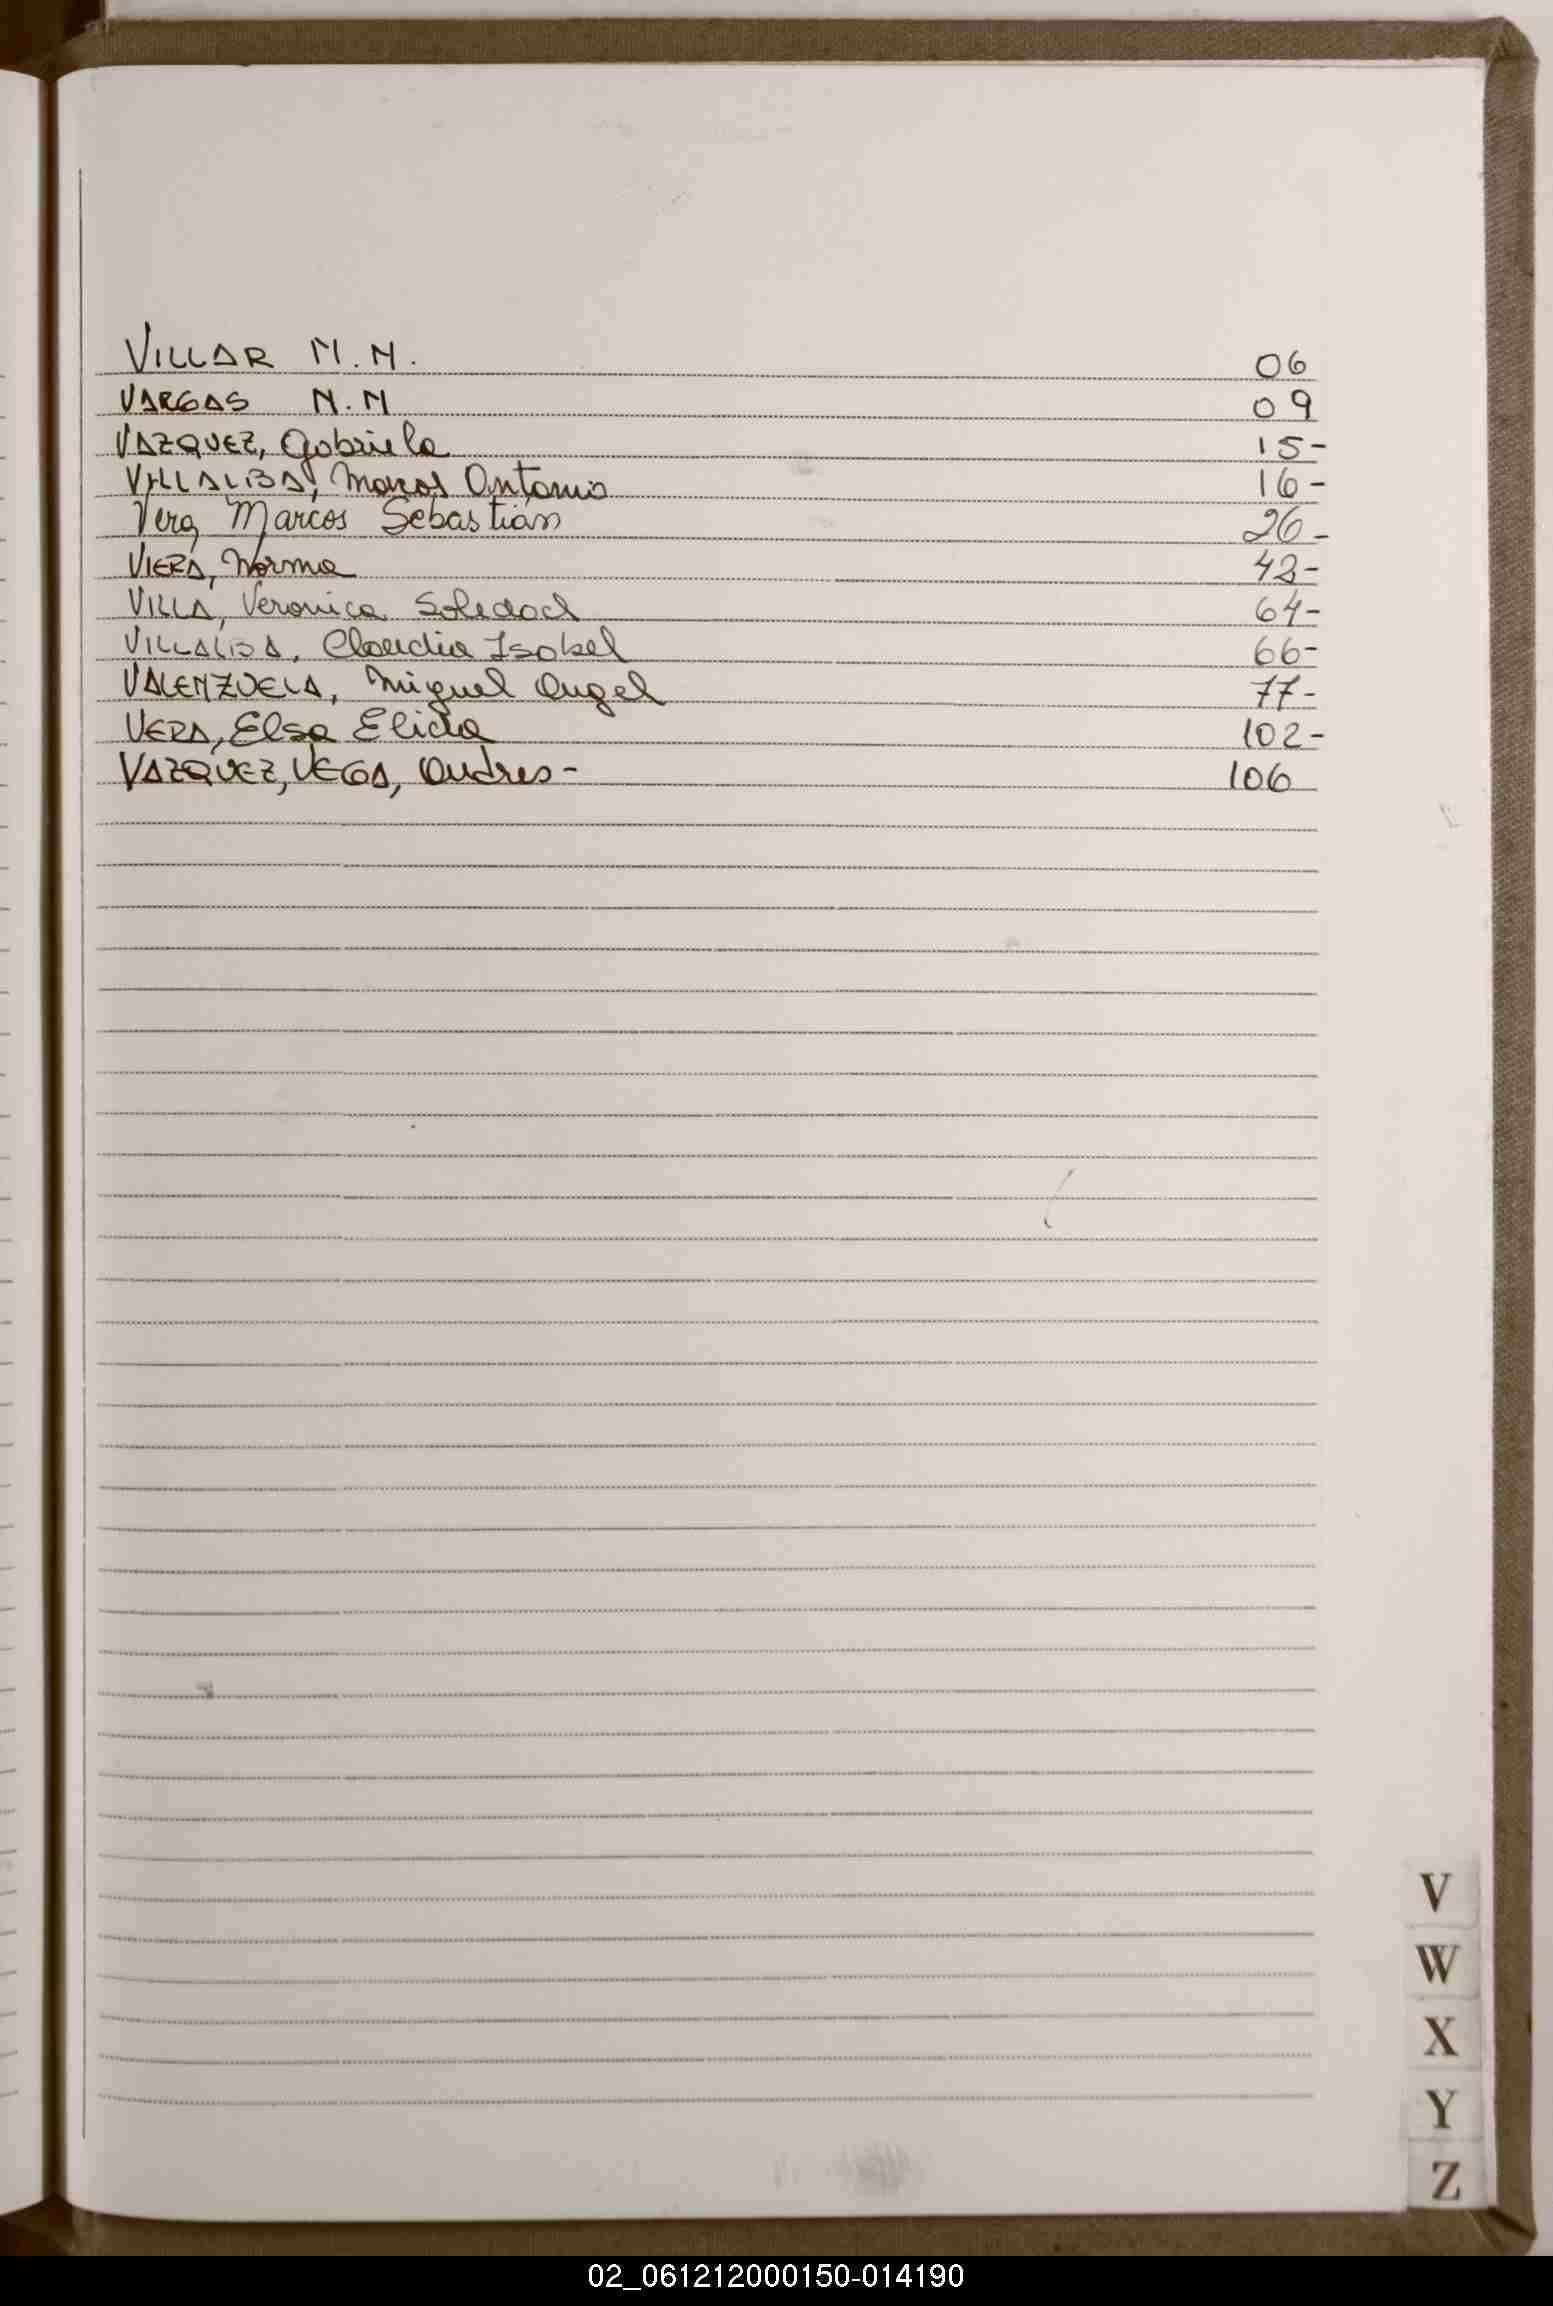 VILLAR N.N. 06
VARGAS N.N 09
VAZQUEZ, Gabriela 15-
VILLALBA, Marcos Antonio 16-
Vera, Marcos Sebastián 26-
VIERA, Norma 43-
VILLA, Veronica Soledad 64-
VILLALBA, Claudia Isabel 66-
VALENZUELA, Miguel Angel 77-
VERA, Elsa Elida 102-
VAZQUEZ, VEGA, Andres- 106
V
W
X
Y
Z
02_061212000150-014190